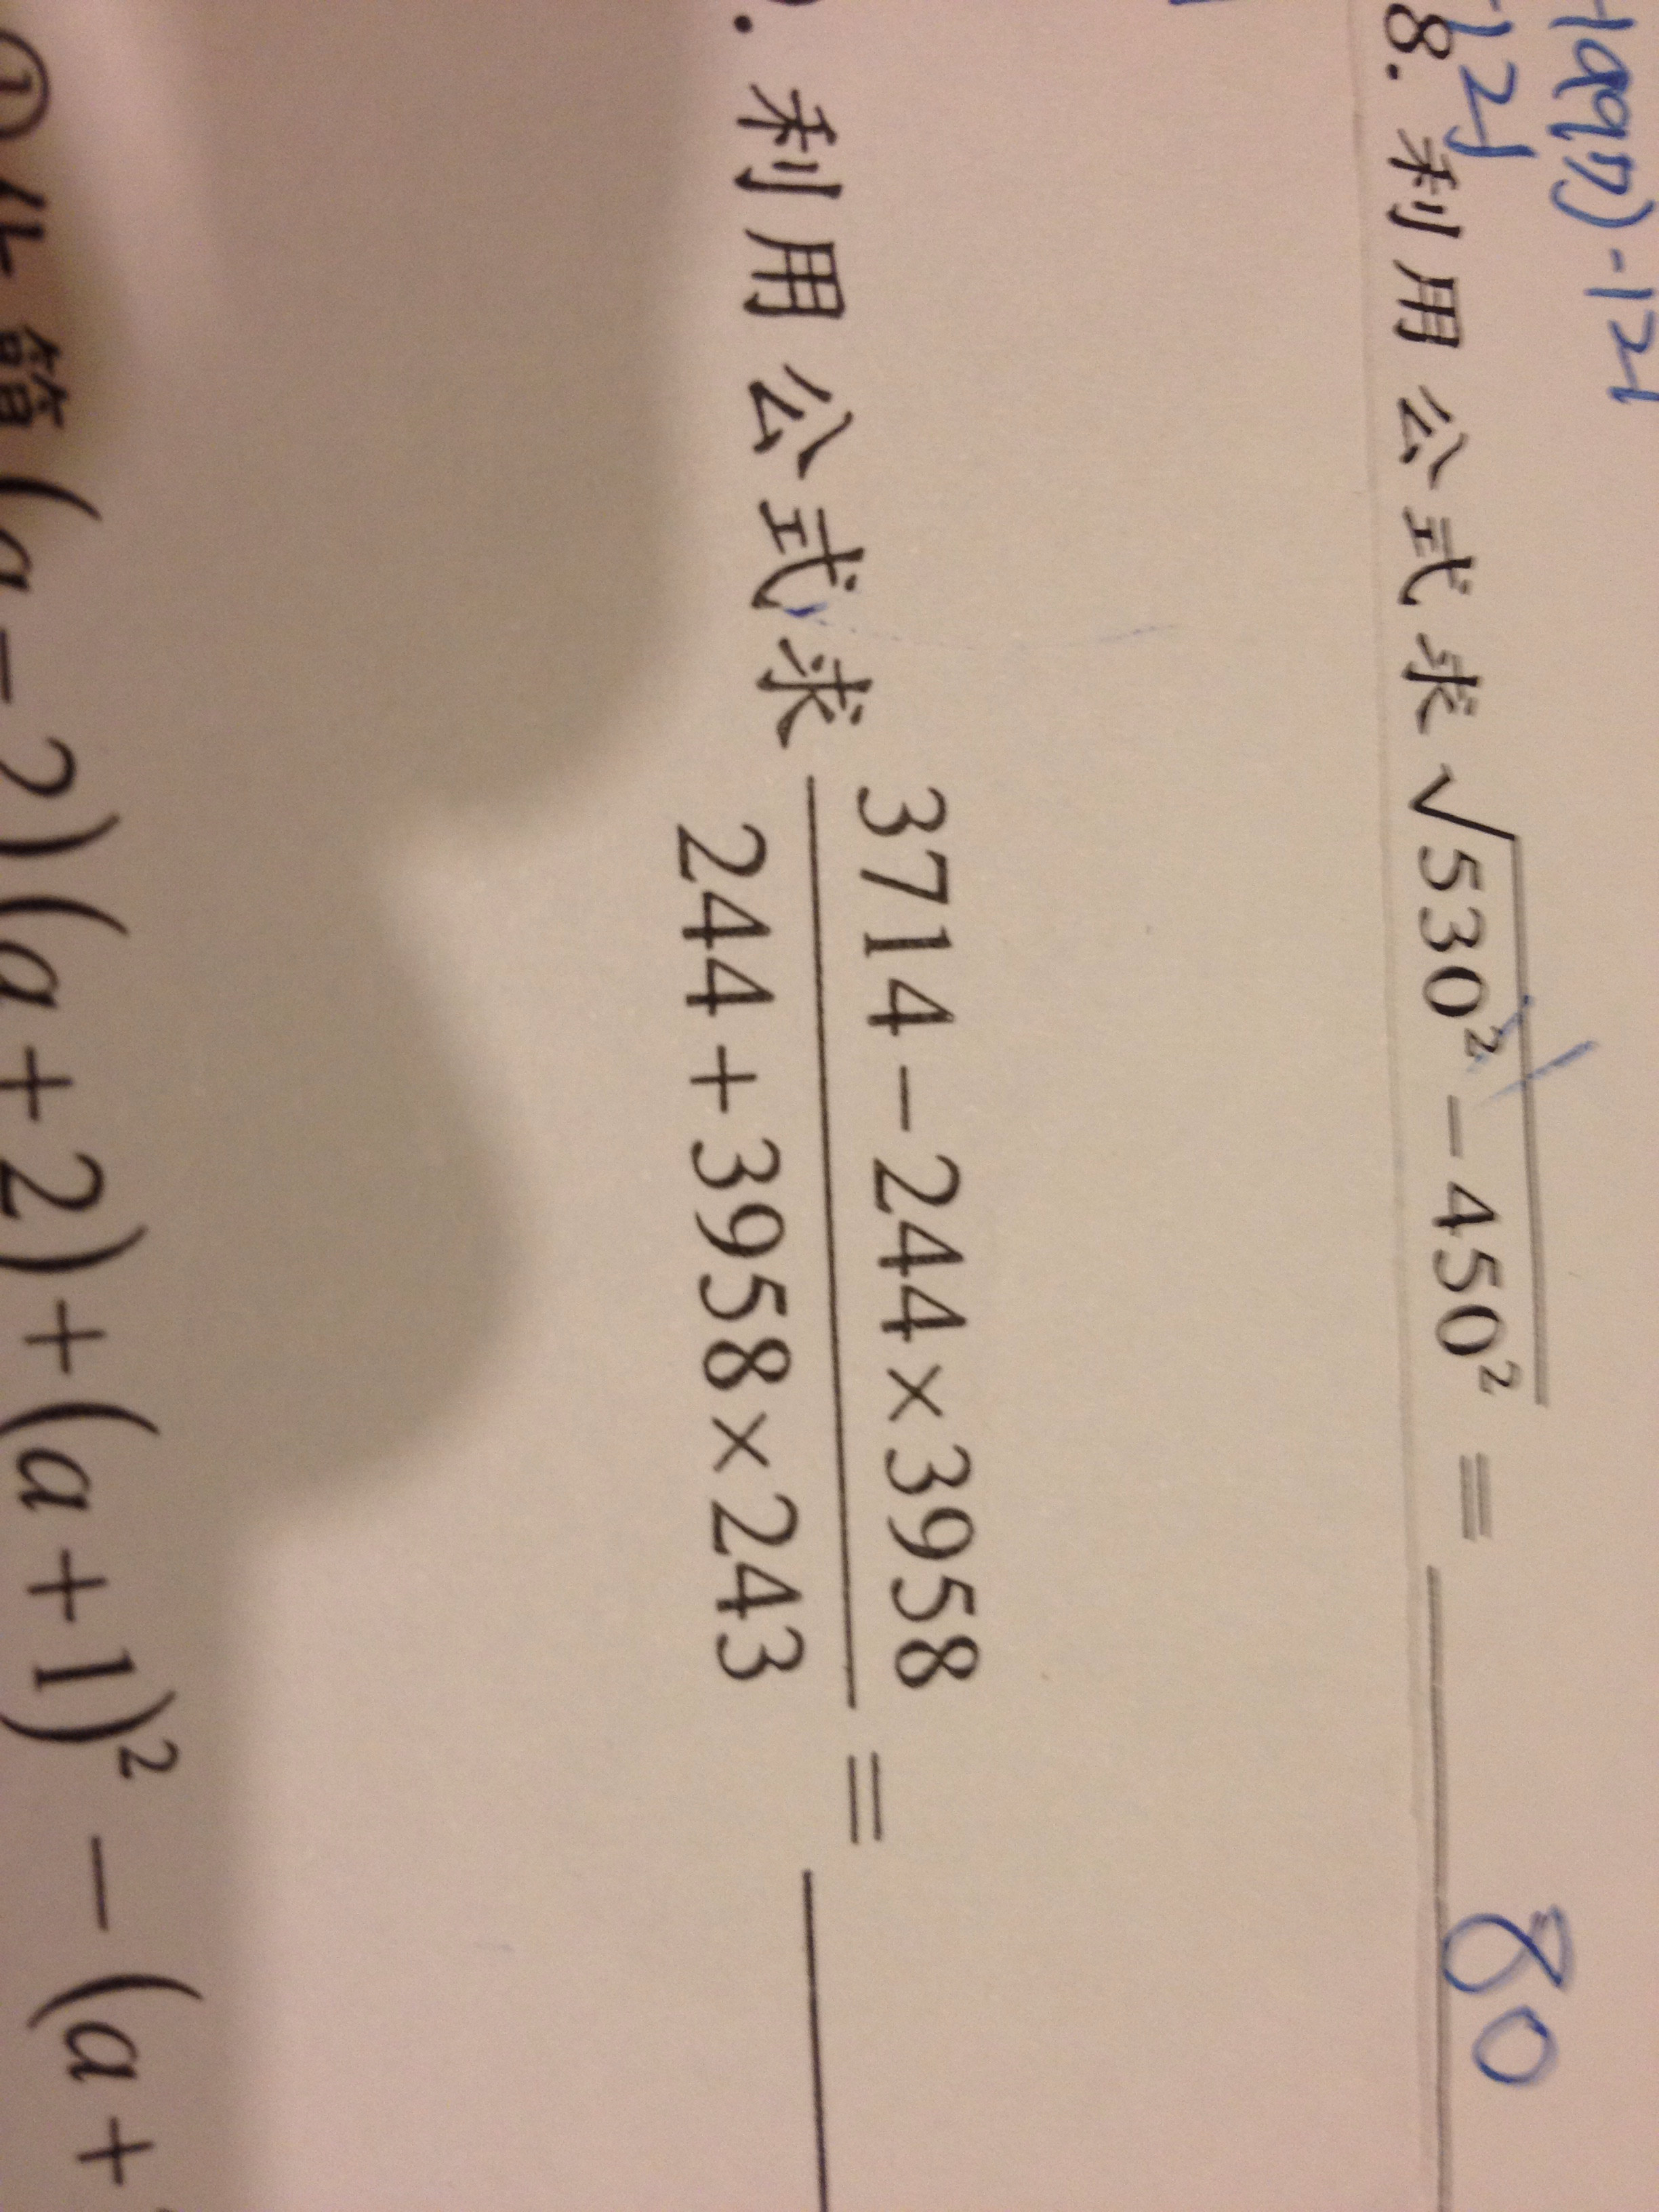 1997)-121
-121
8. 利用公式求 √530² - 450² = 80
. 利用公式求 3714 - 244 × 3958 / 244 + 3958 × 243 =
① 化簡 (a - 2)(a + 2) + (a + 1)² - (a +